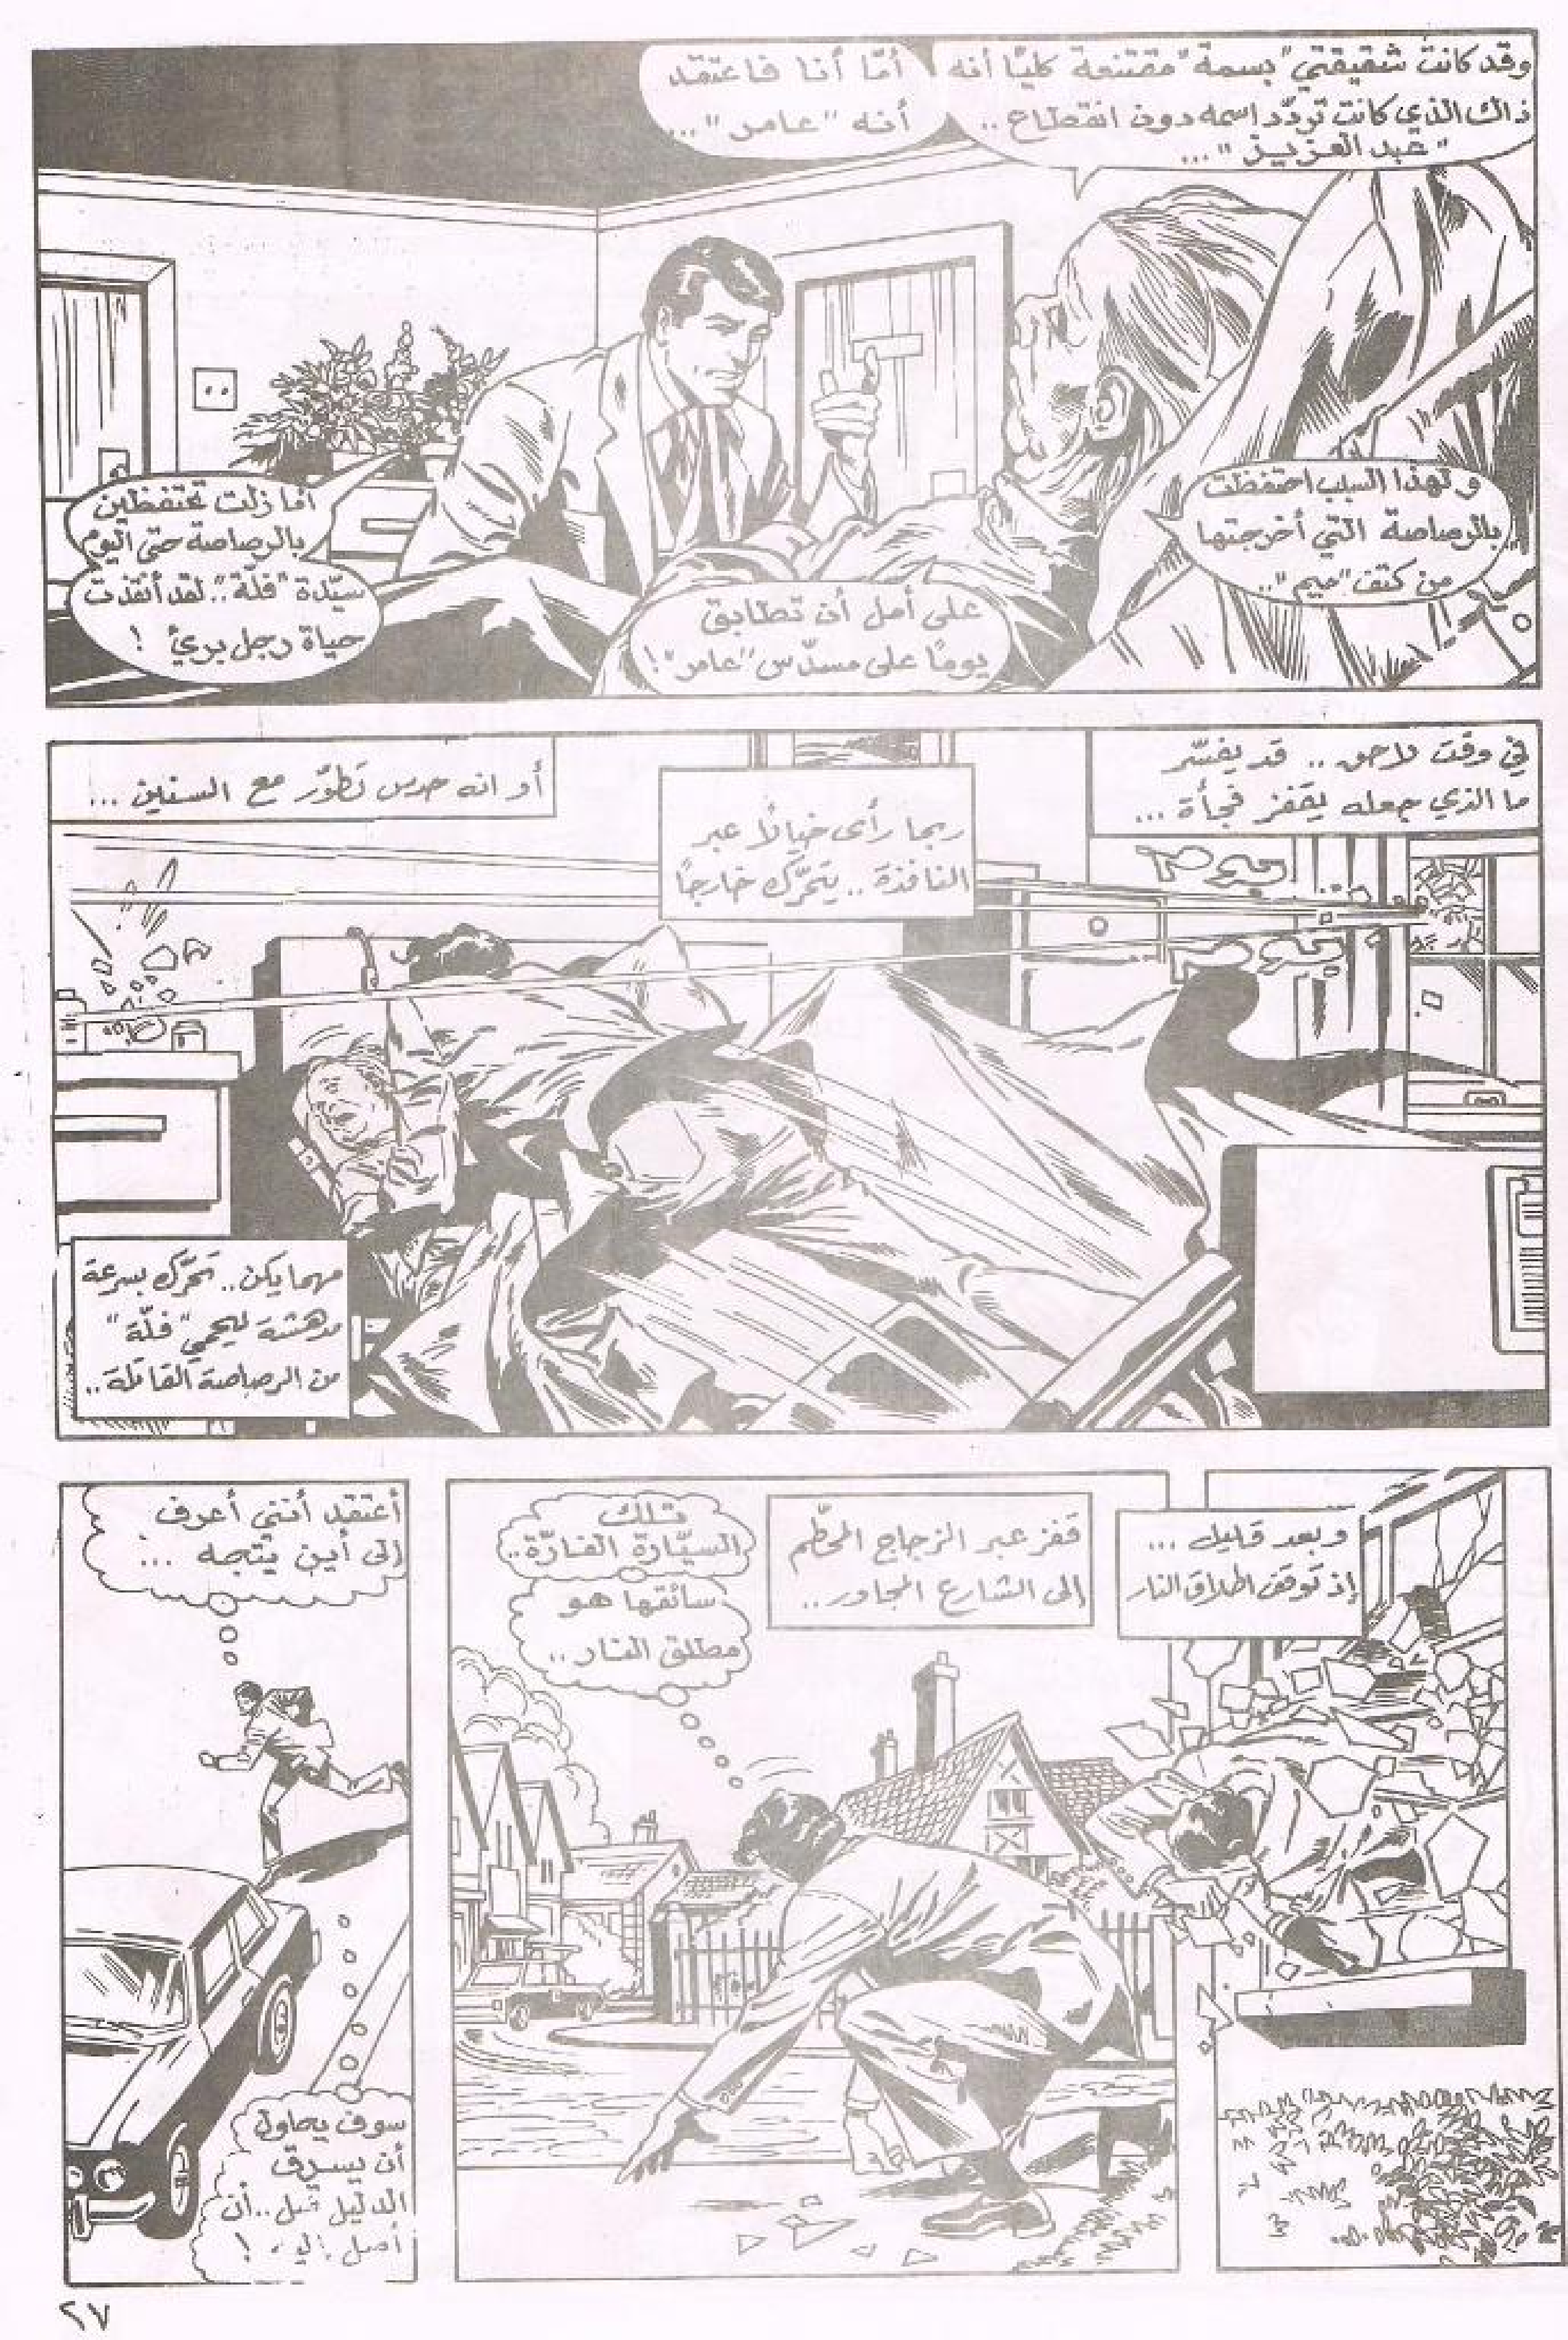 وقد كانت شقيقتي "بسمة" مقتنعة كليًا أنه
ذاك الذي كانت تردّد اسمه دون انقطاع ..
"عبد العزيز" ...
أمّا أنا فاعتقد
أنه "عامر" ...
ولهذا السبب احتفظت
بالرصاصة التي أخرجتها
من كتف "ميم" ..
على أمل أن تطابق
يومًا على مسدّس "عامر" !
أما زلت تحتفظين
بالرصاصة حتى اليوم
سيّدة "فلّة" .. لقد أنقذت
حياة رجل بريء !
في وقت لاحق .. قد يفسّر
ما الذي جعله يقفز فجأة ...
ربما رأى خيالًا عبر
النافذة .. يتحرّك خارجًا
أو انه حدس تطوّر مع السنين ...
مهما يكن .. تحرّك بسرعة
مدهشة ليحمي "فلّة"
من الرصاصة القاتلة ..
وبعد قليل ...
إذ توقف اطلاق النار
قفز عبر الزجاج المحطّم
إلى الشارع المجاور ..
تلك
السيّارة الفارّة ..
سائقها هو
مطلق النار ..
أعتقد أنني أعرف
إلى أين يتجه ...
سوف يحاول
أن يسرق
الدليل قبل .. أن
أصل إليه !
٢٧